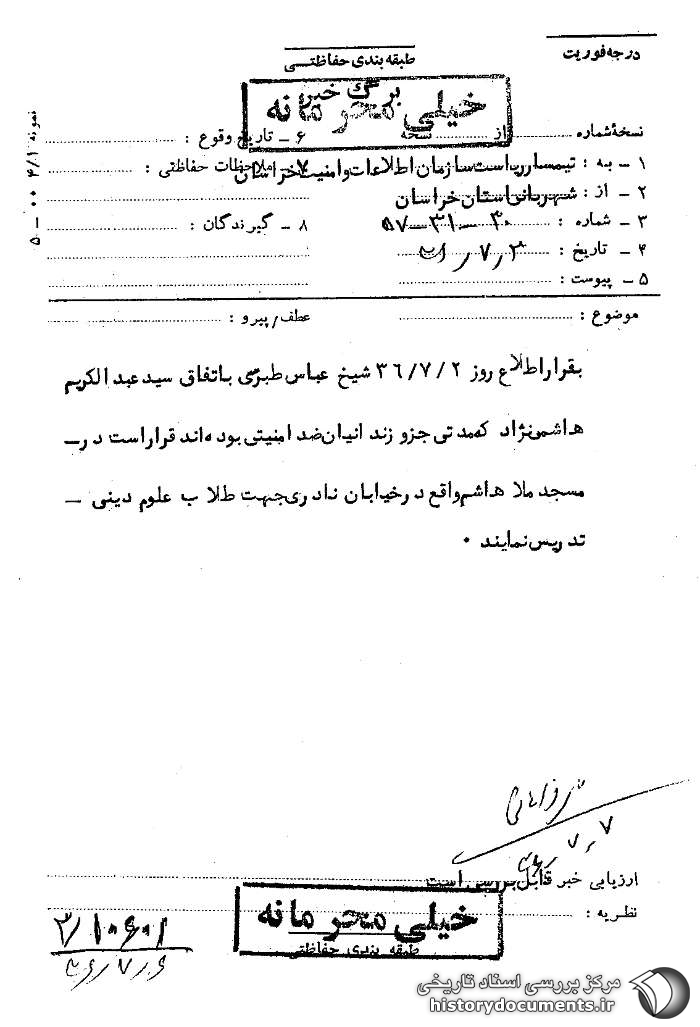 درجه فوریت
طبقه بندی حفاظتـی
برگ خبر
خیلی محرمانه
نمونه ۴/۱
۵ - ۰۰
نسخهٔ شماره از نسخه
۶ ـ تاریخ وقوع :
۱ ـ به : تیمسار ریاست سازمان اطلاعات و امنیت خراسان
۷ ـ ملاحظات حفاظتی :
۲ ـ از : شهربانی استان خراسان
۳ ـ شماره : ۳۰-۳۱-۵۷
۸ ـ گیرندگان :
۴ ـ تاریخ :
۵ ـ پیوست :
موضوع :
عطف/پیرو :
بقرار اطلاع روز ۳۶/۷/۲ شیخ عباس طبرسی باتفاق سید عبدالکریم
هاشمی نژاد که مدتی جزو زندانیان ضد امنیتی بوده اند قرار است در ـ
مسجد ملا هاشم واقع در خیابان نادری جهت طلاب علوم دینی ـ
تدریس نمایند ۰
۷ر۷
ارزیابی خبر قابل بررسی است
نظریه :
خیلی محرمانه
طبقه بندی حفاظتی
۳/۱۰۶۰۱
۳۶٫۷٫۶
مرکز بررسی اسناد تاریخی
historydocuments.ir